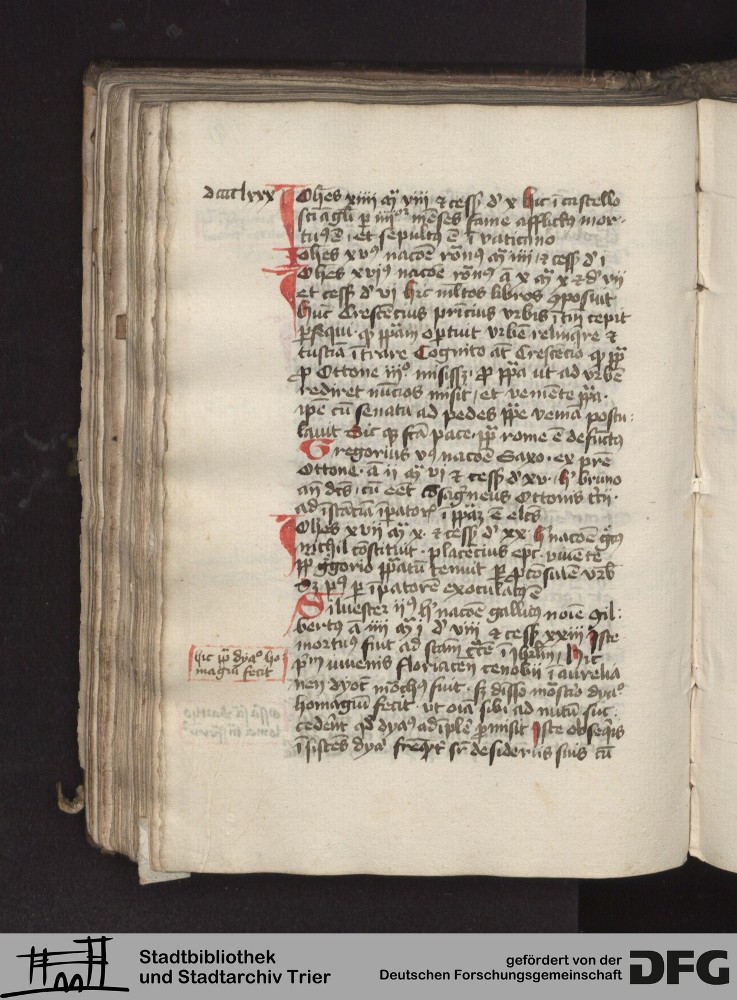 dcccclxxx
Johes xiiii m viii et cess d x hic i castello
sci agli p iiiior meses fame afflictus mor
tuus e et sepultus e i vaticano
Johes xvus nacoe ronus m iiii et cess d i
Johes xvius nacoe ronus a x m x et d vii
et cess d vi hic multos libros oposuit
hunc Crescecius princius urbis i tm cepit
psequi q ppam optuit urbe relinqre et
tuscia itrare Cognito at Crescecio q pp
p Ottone iiio misisz p ppa ut ad urbe
rediret nucios misit et veniete ppa
ipe cu senatu ad pedes ppe venia postu
lavit Sic q fca pace pp rome e defuctus
Gregorius vus nacoe Saxo ex pre
Ottone a ii m vi et cess d xv h bruno
an dcs cu eet osagneus Ottonis tcii
ad istacia ipator i ppaz e elcs
Johes xvii m x et cess d xx h nacoe gcus
nichil costituit placecius epc vivete
pp ggorio ppatu tenuit p cosule urb
Sz pus p ipatore exoculatus e
Silvester iius h nacoe gallicus noie Gil
bertus a iiii m i d viii et cess xxiii Iste
mortuus fuit ad stam cce i Ihrlm Hic
pm iuvenis floriacen cenobii i aurelia
nen dyoc mochus fuit sz disso mostio dyao
homagiu fecit ut oia sibi ad nutu suc
cedent qd dyaus adiple pmisit Iste obseqiis
isistes dya freqt sr desideriis suis cu
hic pp dyao ho
magiu fecit
Stadtbibliothek
und Stadtarchiv Trier
gefördert von der
Deutschen Forschungsgemeinschaft
DFG